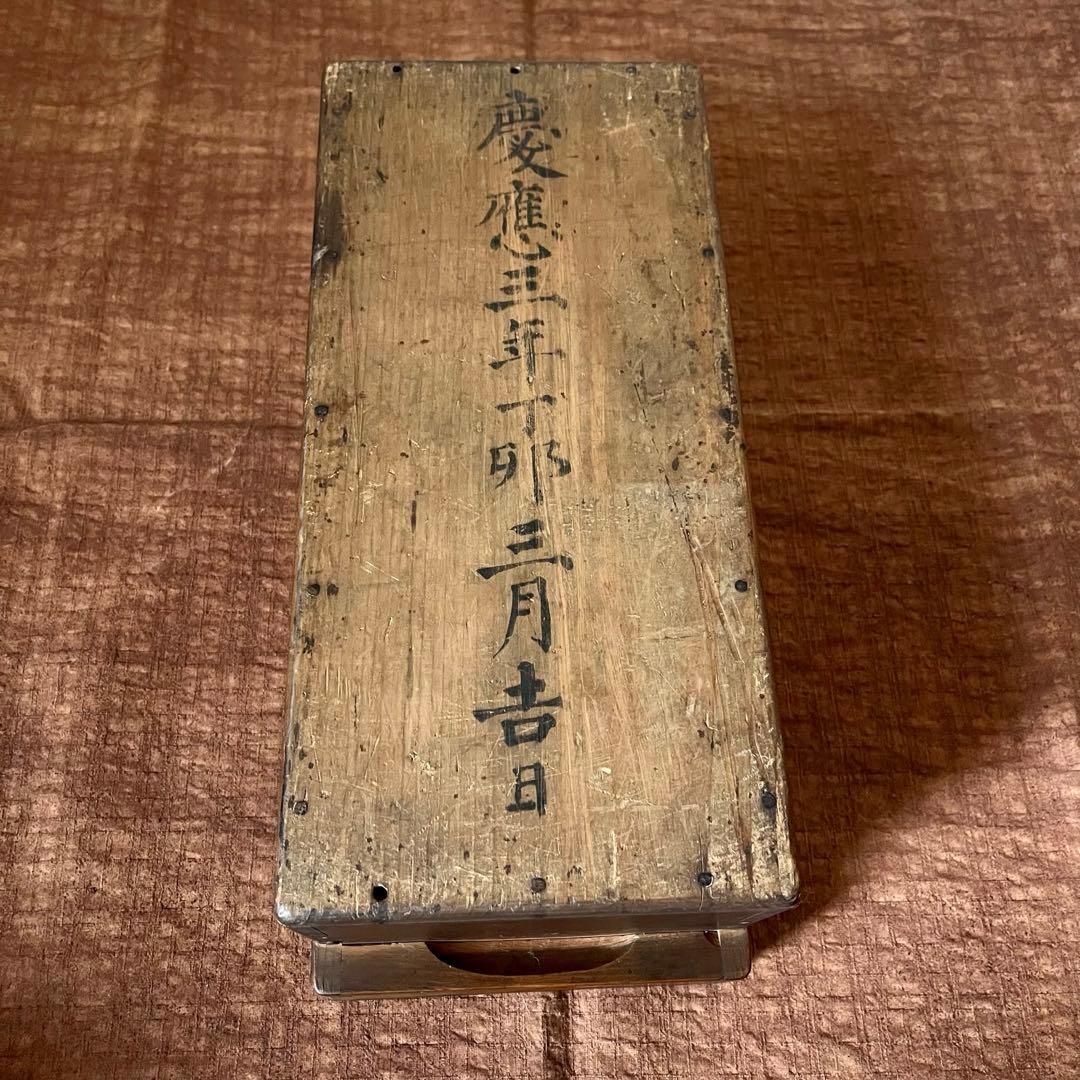 慶應三年丁卯三月吉日